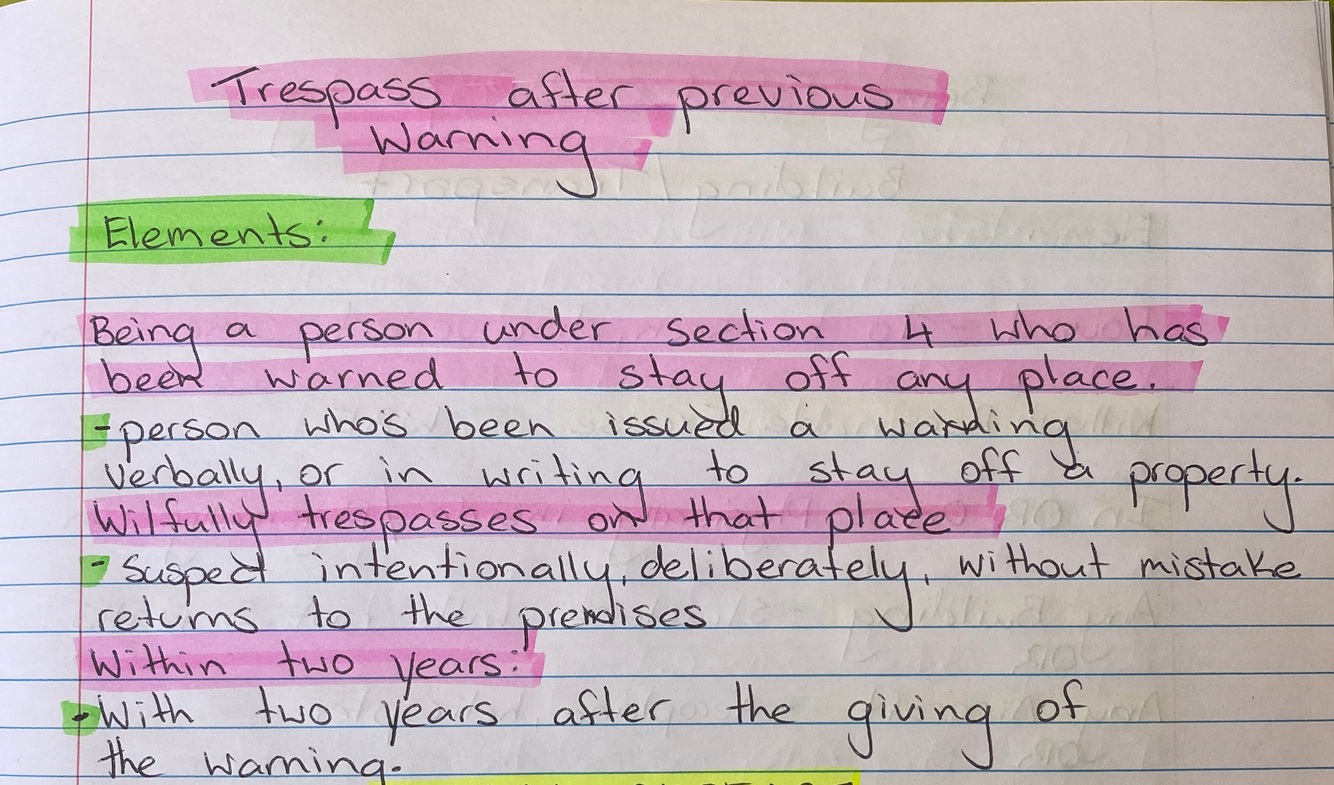 Trespass after previous
Warning
Elements:
Being a person under section 4 who has
been warned to stay off any place.
- person who's been issued a warning
verbally, or in writing to stay off a property.
Wilfully trespasses on that place
- Suspect intentionally, deliberately, without mistake
returns to the premises
Within two years:
- With two years after the giving of
the warning.